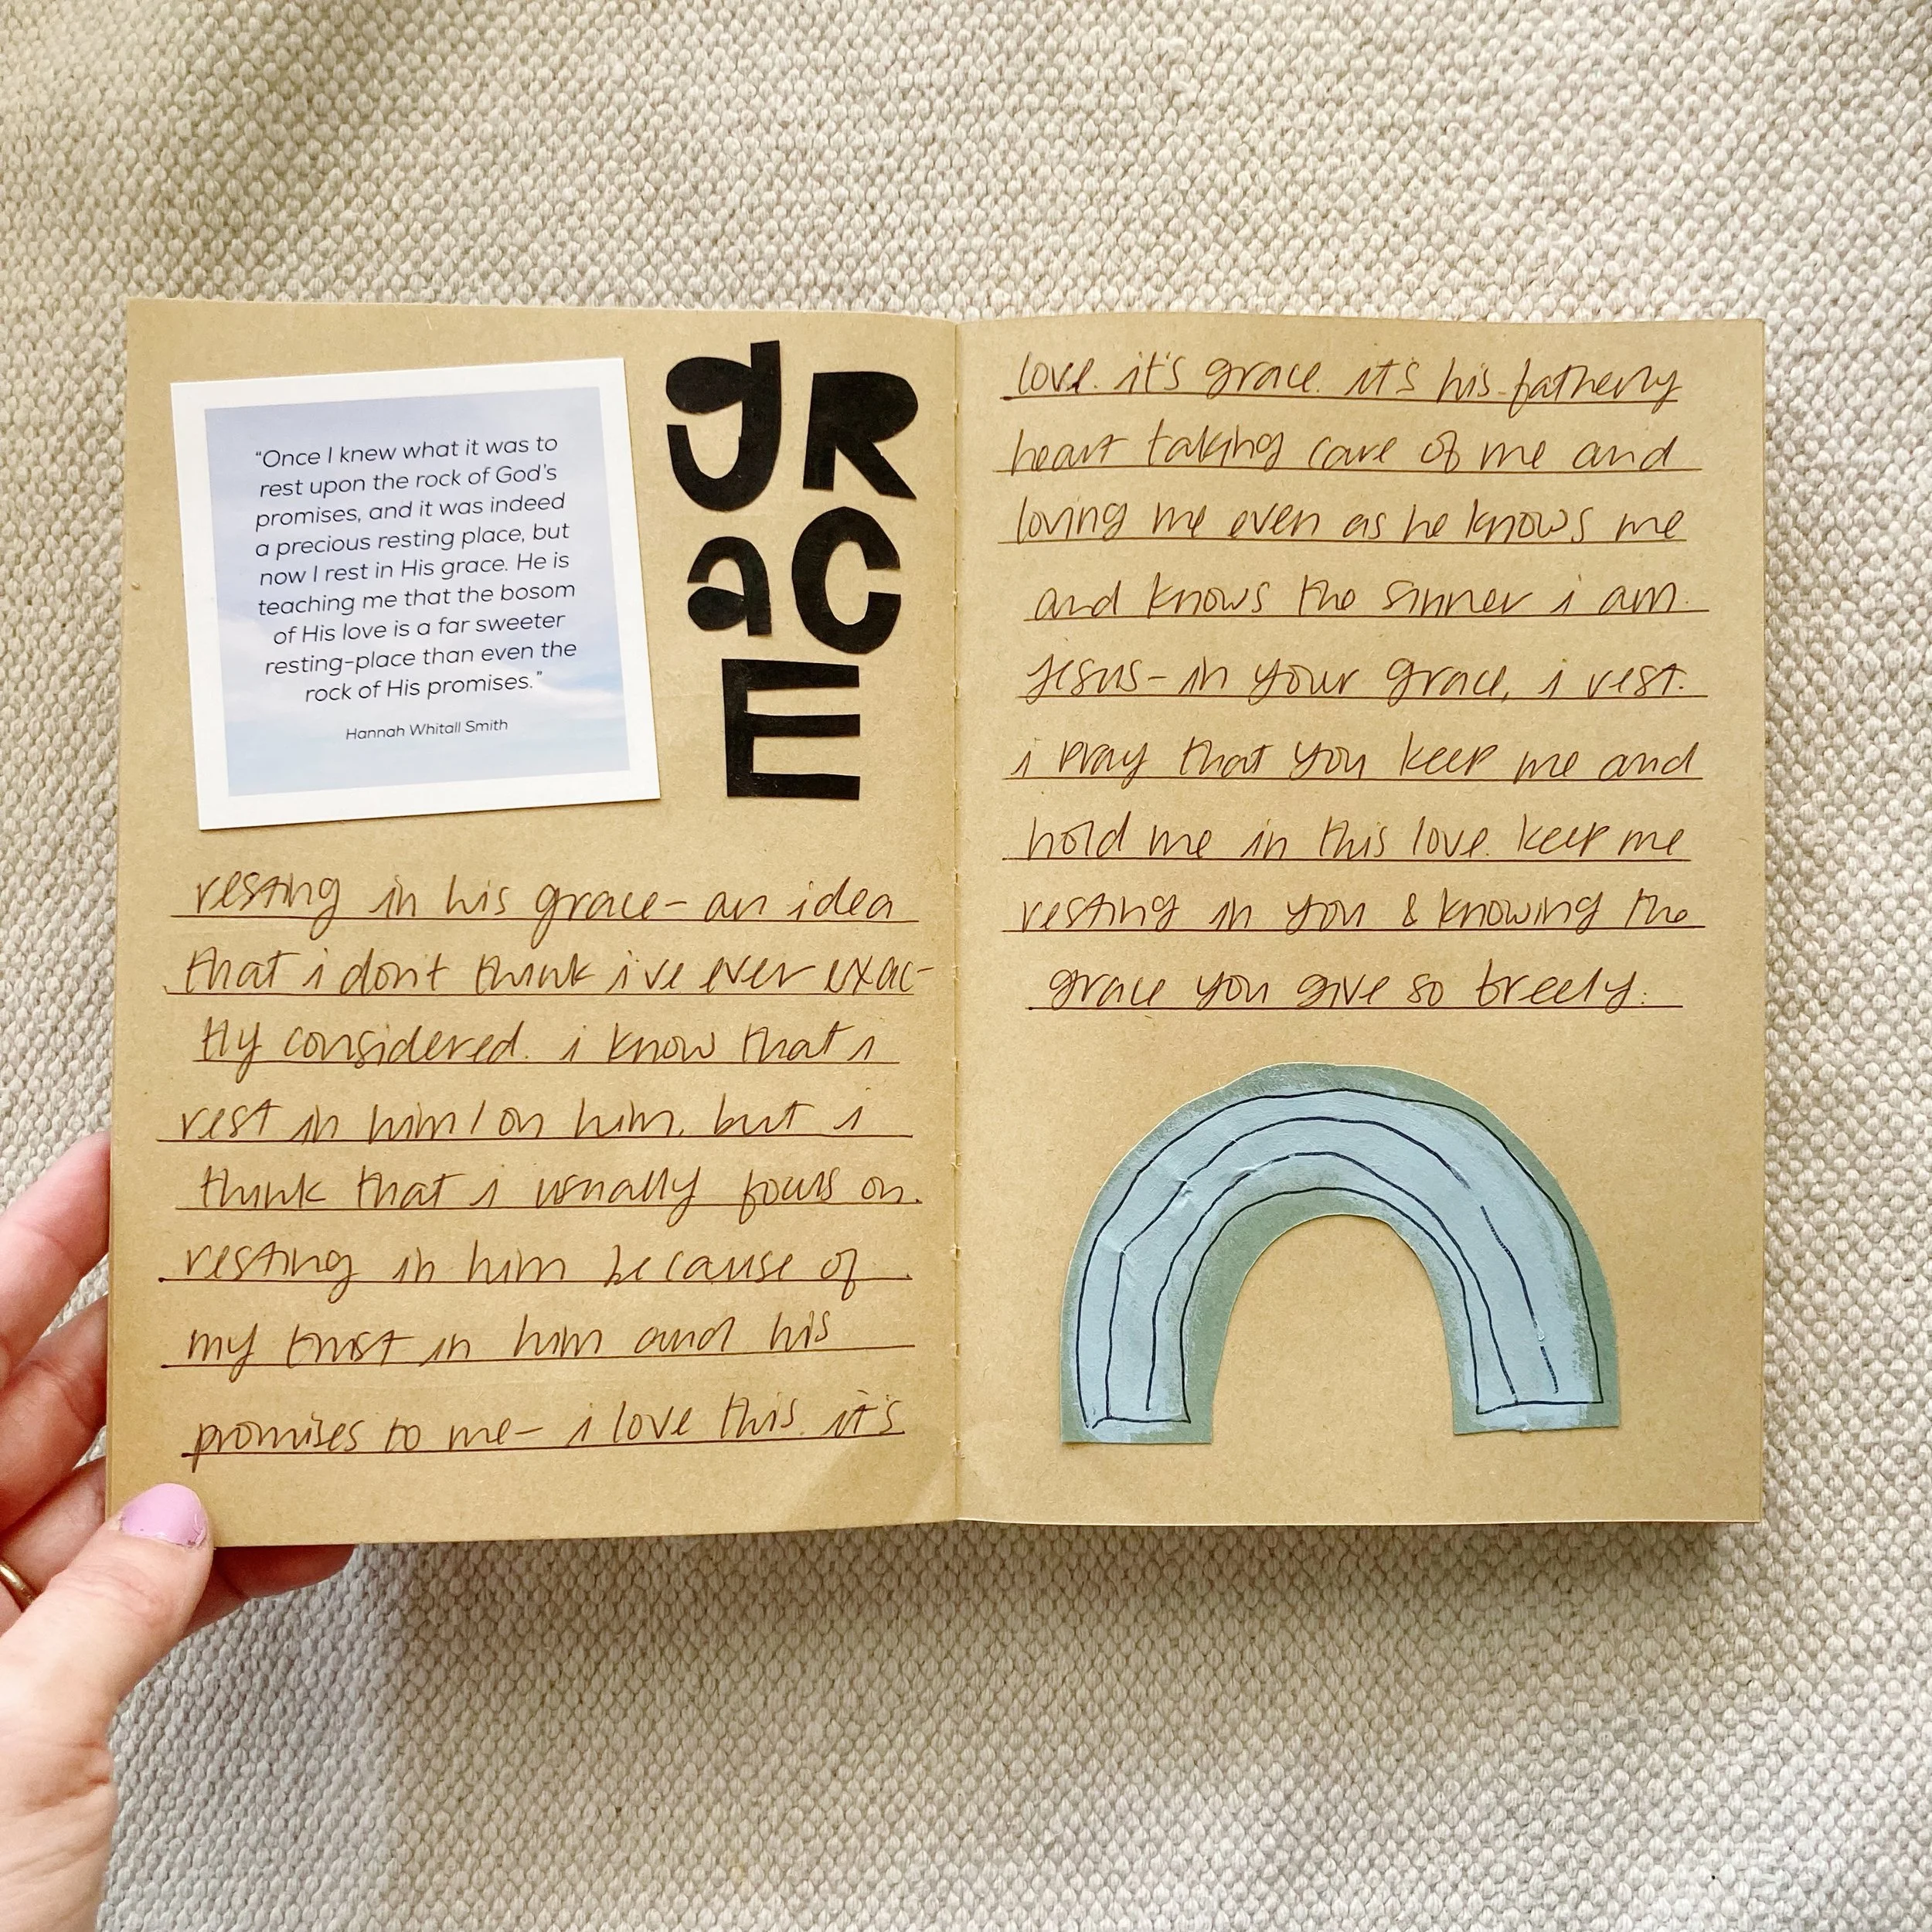 “Once I knew what it was to
rest upon the rock of God’s
promises, and it was indeed
a precious resting place, but
now I rest in His grace. He is
teaching me that the bosom
of His love is a far sweeter
resting-place than even the
rock of His promises.”
Hannah Whitall Smith
gR
aC
E
resting in his grace- an idea
that i don't think i've ever exac-
tly considered. i know that i
rest in him/on him, but i
think that i usually focus on
resting in him because of
my trust in him and his
promises to me- i love this. it's
love. it's grace. it's his fatherly
heart taking care of me and
loving me even as he knows me
and knows the sinner i am.
Jesus- in your grace, i rest.
i pray that you keep me and
hold me in this love. keep me
resting in you & knowing the
grace you give so freely.